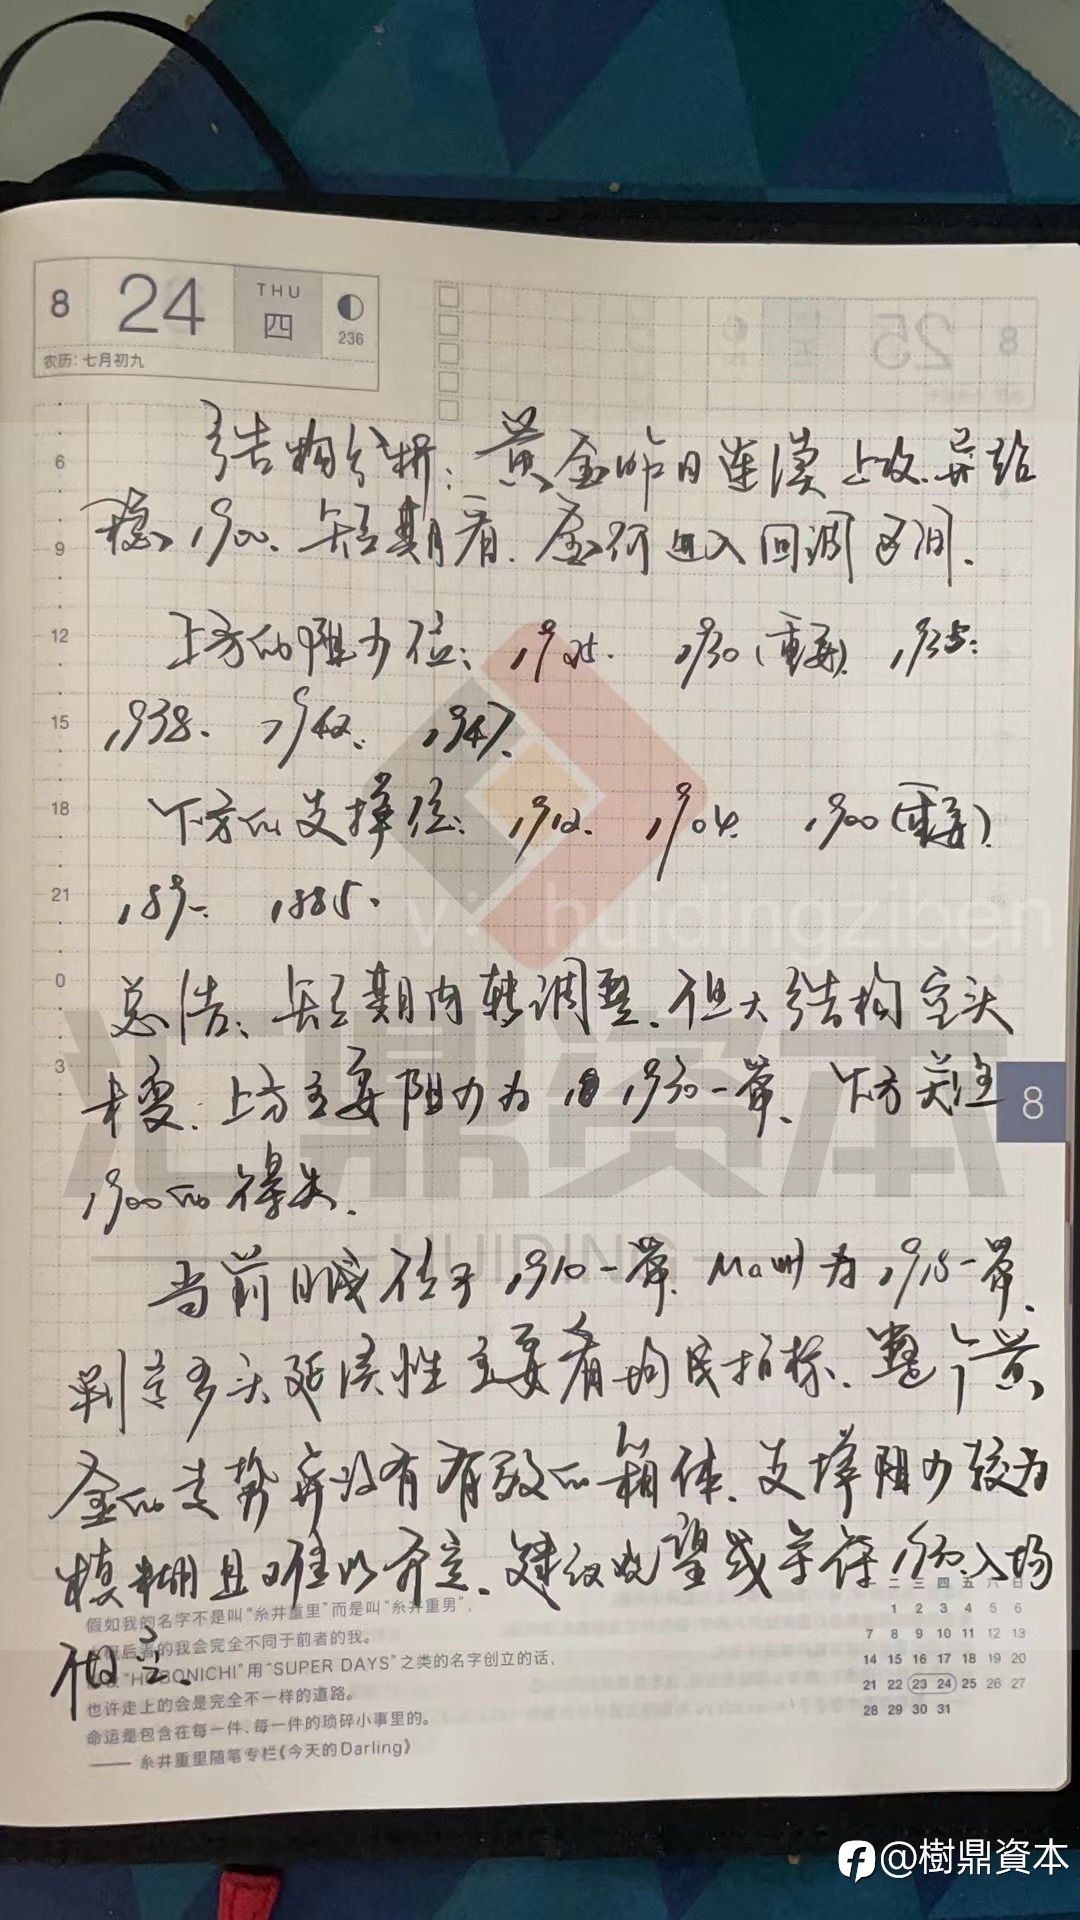 8 24 THU 四 236
农历：七月初九
结构分析：黄金昨日连续上攻.并站
稳1900. 短期看. 金价进入回调区间.
上方的阻力位：1925. 1930（重要）. 1935.
1938. 1942. 1947.
下方的支撑位：1912. 1904. 1900（重要）.
189. 1885.
总结：短期内转调整. 但大结构空头
未变. 上方主要阻力为 1930一带. 下方关注
1900的得失.
当前日线位于1910一带. Ma 为1915一带.
判定多头延续性主要看均线指标. 整个黄
金的走势并没有有效的箱体. 支撑阻力较为
模糊且难以界定. 建议观望或等待1930入场
做空.
6
9
12
15
18
21
0
3
8
假如我的名字不是叫“糸井重里”而是叫“糸井重男”，
后者的我会完全不同于前者的我。
“HOBONICHI”用“SUPER DAYS”之类的名字创立的话，
也许走上的会是完全不一样的道路。
命运是包含在每一件、每一件的琐碎小事里的。
—— 糸井重里随笔专栏《今天的Darling》
一 二 三 四 五 六 日
1 2 3 4 5 6
7 8 9 10 11 12 13
14 15 16 17 18 19 20
21 22 23 24 25 26 27
28 29 30 31
v：huidingzipen
汇鼎资本
HUIDING
@樹鼎資本